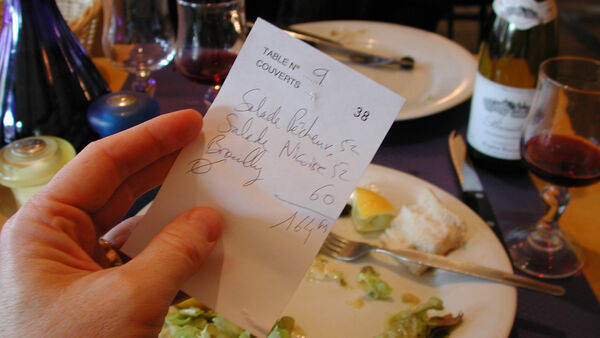 TABLE N° 9
COUVERTS
38
Salade Pêcheur, 52
Salade Niçoise, 52
Brouilly 60
164